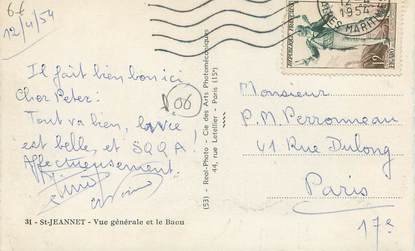 6f
12/4/54
1954
ALPES MARITIMES
REPUBLIQUE FRANÇAISE
Il fait bien bon ici
Cher Peter:
Tout va bien, la vie
est belle, et SQQA !
Affectueusement.
D06
(53) - Real-Photo - Cie des Arts Photomécaniques
44, rue Letellier - Paris (15e)
Monsieur
P.M. Perronneau
41 Rue Dulong
Paris
17e
31 - St-JEANNET - Vue générale et le Baou